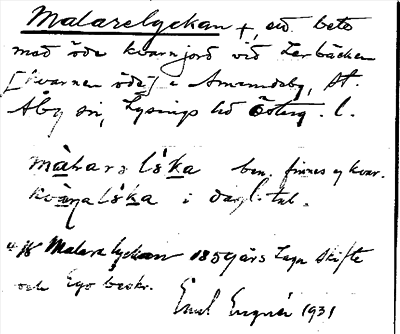 Malarelyckan +, ett bete
med öde kvarnjord vid Lerbäcken
[kvarnen öde] i Amundeby, St.
Åby sn, Lysings hd Österg. l.
màharslíska ben. finnes ej kvar.
kvànalíska i dagl. tal.
Malarelyckan 1859 års Laga skifte
och Egobeskr.
Emil 1931